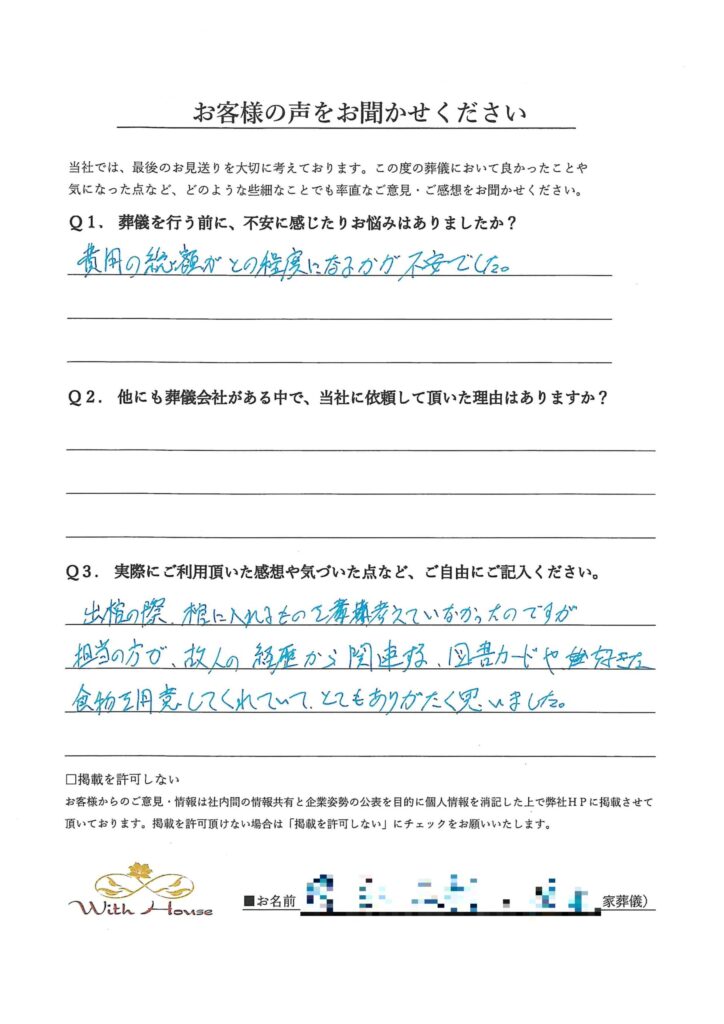 お客様の声をお聞かせください
当社では、最後のお見送りを大切に考えております。この度の葬儀において良かったことや
気になった点など、どのような些細なことでも率直なご意見・ご感想をお聞かせください。
Q1. 葬儀を行う前に、不安に感じたりお悩みはありましたか？
費用の総額がどの程度になるかが不安でした。
Q2. 他にも葬儀会社がある中で、当社に依頼して頂いた理由はありますか？
Q3. 実際にご利用頂いた感想や気づいた点など、ご自由にご記入ください。
出棺の際、棺に入れるものを考えていなかったのですが
担当の方が、故人の経歴から関連する、図書カードや、好きな
食物を用意してくれていて、とてもありがたく思いました。
□掲載を許可しない
お客様からのご意見・情報は社内間の情報共有と企業姿勢の公表を目的に個人情報を消記した上で弊社HPに掲載させて
頂いております。掲載を許可頂けない場合は「掲載を許可しない」にチェックをお願いいたします。
With House
■お名前 家葬儀）